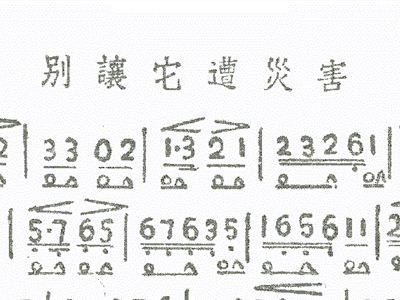 別讓它遭災害
2 | 3 3 0 2 | 1·3 2 1 | 2 3 2 6 1 |
| 5·7 6 5 | 6 7 6 3 5 | 1 6 5 6 1 1 | 2